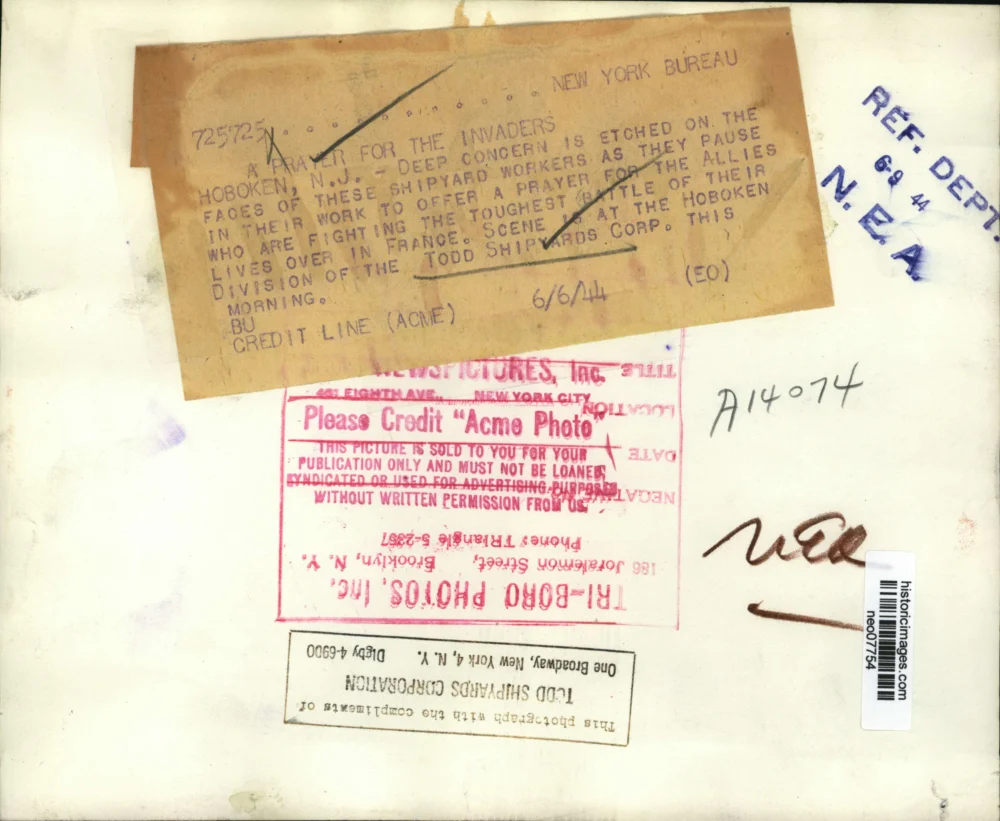 NEW YORK BUREAU
725725
A PRAYER FOR THE INVADERS
HOBOKEN, N.J. - DEEP CONCERN IS ETCHED ON THE
FACES OF THESE SHIPYARD WORKERS AS THEY PAUSE
IN THEIR WORK TO OFFER A PRAYER FOR THE ALLIES
WHO ARE FIGHTING THE TOUGHEST BATTLE OF THEIR
LIVES OVER IN FRANCE. SCENE IS AT THE HOBOKEN
DIVISION OF THE TODD SHIPYARDS CORP. THIS
MORNING.
BU
CREDIT LINE (ACME) 6/6/44 (EO)
REF. DEPT.
6-9 44
N. E. A.
NEWSPICTURES, Inc.
461 EIGHTH AVE., NEW YORK CITY
Please Credit "Acme Photo"
THIS PICTURE IS SOLD TO YOU FOR YOUR
PUBLICATION ONLY AND MUST NOT BE LOANED,
SYNDICATED OR USED FOR ADVERTISING PURPOSES
WITHOUT WRITTEN PERMISSION FROM US.
TRI-BORO PHOTOS, Inc.
186 Joralemon Street, Brooklyn, N. Y.
Phone: TRiangle 5-2357
NEGATIVE No.
DATE
LOCATION
TITLE
A14074
This photograph with the compliments of
TODD SHIPYARDS CORPORATION
One Broadway, New York 4, N. Y. Digby 4-6900
historicimages.com
neo07754